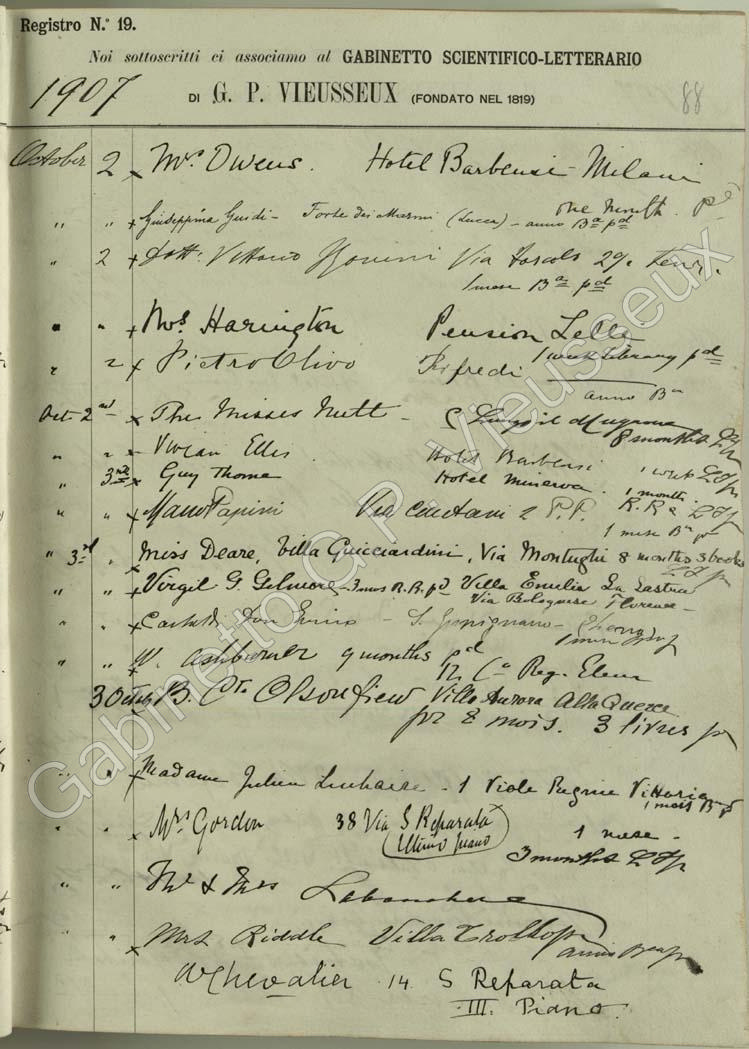 Registro N.° 19.
Noi sottoscritti ci associamo al GABINETTO SCIENTIFICO-LETTERARIO
1907 DI G. P. VIEUSSEUX (FONDATO NEL 1819) 88
October 2 x Mrs. Owens. Hotel Barbensi-Milani
One Month. pd
" " x Giuseppina Guidi - Forte dei Marmi (Lucca) - anno Ba pd
" 2 x Dott. Vittorio Via
1 mese Ba pd
" " x Mrs Harington Pension Lelli
1 week Library pd
" 2 x Pietro Olivo Rifredi
anno Ba
Oct 2nd x The Misses Nutt - Lung'il Mugnone
8 months
" " x Vivian Ellis Hotel Barbensi 1 week
" 3rd x Guy Thorne Hotel Minerva. 1 month.
" " x Papini Via 2 P.P. R.R &
1 mese Ba pd
" 3rd x Miss Deare, Villa Guicciardini, Via Montughi 8 months 3 books
" " x Virgil G. Gilmore - 3 mos R.R. pd Villa Emilia La Lastra
Via Bolognese Florence -
" " x Don -
1 mese
" " x W. Ashburner 9 months pd
3 October B. Villa Aurora Alla Querce
pr 8 mois. 3 livres p
" " x Madame Julien Luchaire - 1 Viale Regina Vittoria
1 mois
" " x Mrs Gordon 38 Via S Reparata 1 mese -
Ultimo piano
3 months
" " Mr & Mrs Labouchere
" x Mrs Riddle Villa Trollope
Chevalier 14. S Reparata
III. Piano.
Gabinetto G.P. Vieusseux